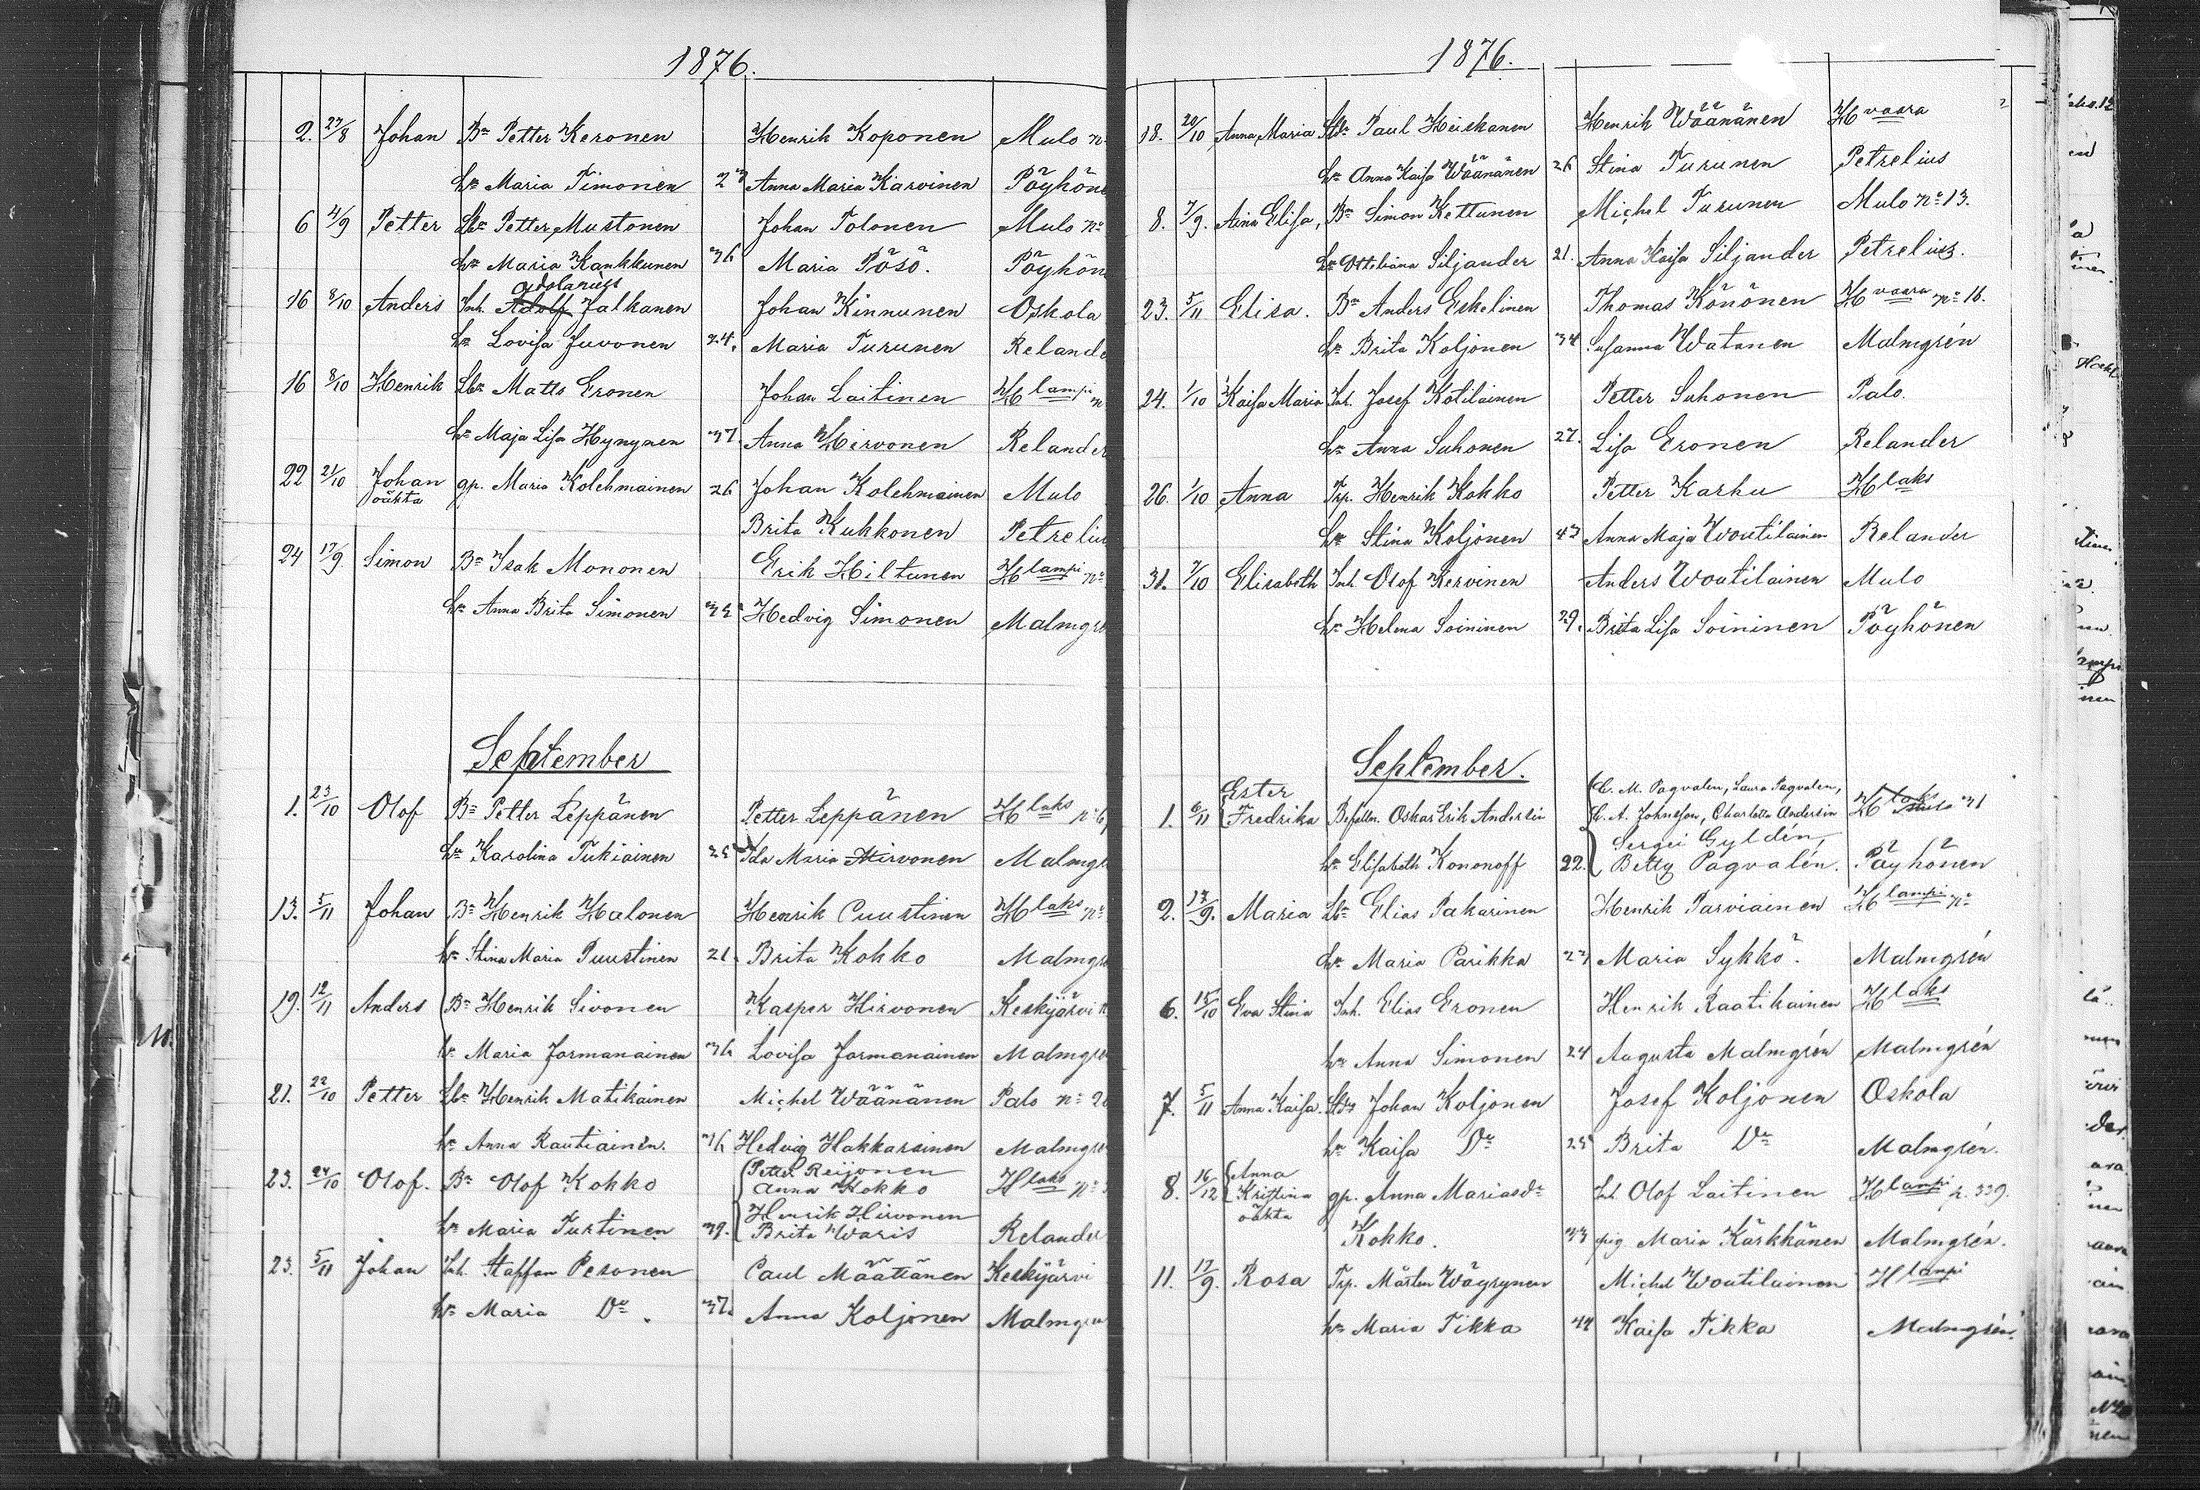 1876.
2. 27/8 Johan Bn Petter Keronen Henrik Koponen Mulo n
hn Maria Timonen 23 Anna Maria Karvinen Pöyhöne
6 4/9 Petter Lbn Petter Mustonen Johan Tolonen Mulo no
hn Maria Kankkunen 36 Maria Pösö. Pöyhön
adolarius
16 8/10 Anders Inh. Adolf Jalkanen Johan Kinnunen Oskola
hn Lovisa Juvonen 24. Maria Turunen Relande
16 8/10 Henrik Lbn Matts Eronen Johan Laitinen H lampi n
hn Maja Lisa Hynynen 37. Anna Hirvonen Relander
22 21/10 Johan gp. Maria Kolehmainen 26 Johan Kolehmainen Mulo
oäkta Brita Kukkonen Petrelius
24 17/9 Simon Bn Isak Mononen Erik Hiltunen H lampi no
hn Anna Brita Simonen Hedvig Simonen Malmgre
September
1. 23/10 Olof Bn Petter Leppänen Petter Leppänen H laks no 6
hn Karolina Tukiainen Ida Maria Hirvonen Malmgr
13. 5/11 Johan Bn Henrik Halonen Henrik Puustinen H laks no
hn Stina Maria Puustinen 21. Brita Kokko Malmgre
19. 12/11 Anders Bn Henrik Sivonen Kasper Hirvonen Keskijärvi n
hn Maria Jormanainen 36 Lovisa Jormanainen Malmgre
21. 22/10 Petter Lbn Henrik Matikainen Michel Wäänänen Palo no 20
hn Anna Rautiainen. 36 Hedvig Hakkarainen Malmgre
23. 24/10 Olof. Bn Olof Kokko Petter Reijonen H laks no
Anna Kokko
Henrik Hirvonen
hn Maria Turtinen 39. Brita Waris Relander
23. 5/11 Johan Inh. Staffan Pesonen Paul Määttänen Keskijärvi
hn Maria Do. 37. Anna Koljonen Malmgre
1876.
18. 20/10 Anna Maria Paul Heiskanen Henrik Wäänänen H vaara
hn Anna Kaisa Wäänänen 26 Stina Turunen Petrelius
8. 7/9. Aina Elisa, Bn Simon Kettunen Michel Turunen Mulo no 13.
hn Ottiliana Siljander 21. Anna Kaisa Siljander Petrelius.
23. 5/11 Elisa. Bn Anders Eskelinen Thomas Könönen H vaara no 16.
hn Brita Koljonen 34 Susanna Watanen Malmgrén
24. 1/10 Kaisa Maria Inh. Josef Kotilainen Petter Suhonen Palo.
hn Anna Suhonen 27. Lisa Eronen Relander
26. 1/10 Anna Trp. Henrik Kokko Petter Karhu H laks
hn Stina Koljonen 43 Anna Maja Woutilainen Relander
31. 7/10 Elisabeth Inh. Olof Kervinen Anders Woutilainen Mulo
hn Helena Soininen 29. Brita Lisa Soininen Pöyhönen
September.
Ester C. M. Pagvalen, Laura Pagvalen,
1. 6/11 Fredrika Befallm. Oskar Erik Andersin C. A. Johnsson, Charlotta Andersin H laks
Sergei Gyldén,
hn Elisabeth Kononoff 22. Betty Pagvalén. Pöyhönen
2. 17/9. Maria Lbn Elias Pakarinen Henrik Parviainen H lampi no
hn Maria Parikka 23 Maria Sykkö. Malmgrén
6. 15/10 Eva Stina Inh. Elias Eronen Henrik Raatikainen H laks
hn Anna Simonen 24 Augusta Malmgrén Malmgrén
7. 5/11 Anna Kaisa. Johan Koljonen Josef Koljonen Oskola
hn Kaisa Do 25 Brita Do Malmgrén.
8. 16/12 Anna
Kristina gp. Anna Mariasdr Inh Olof Laitinen H lampi p. 339.
oäkta Kokko. 33 pig Maria Kärkkänen Malmgrén.
11. 17/9. Rosa Trp. Mårten Wäyrynen Michel Woutilainen H lampi
hn Maria Tikka 44 Kaisa Tikka Malmgrén.